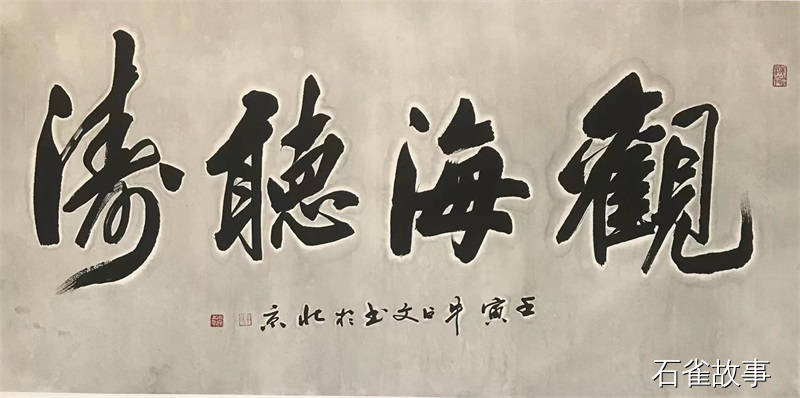 觀海聽涛
壬寅年日文书於北京
石雀故事